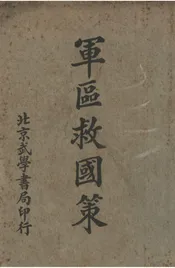 軍區救國策
北京武學書局印行